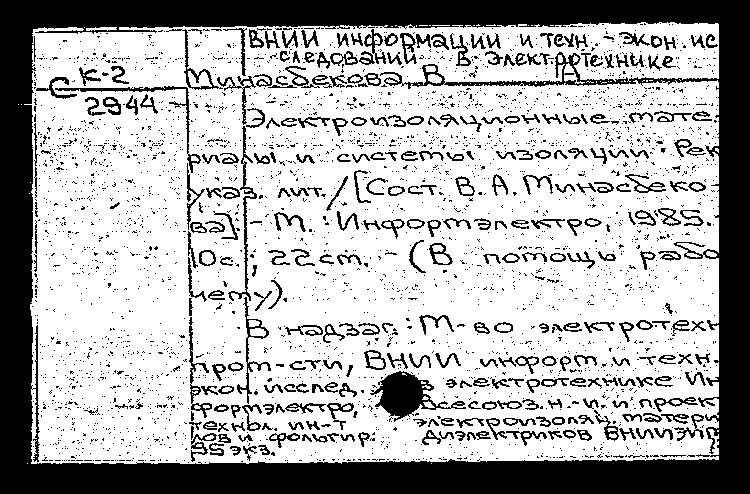 ВНИИ информации и техн.-экон. ис
следований в электротехнике
С К-2
2944
Минасбекова В А
Электроизоляционные мате-
риалы и системы изоляции: Рек
указ. лит. / [Сост. В. А. Минасбеко-
ва]. - М. : Информэлектро, 1985. -
10с. ; 22 см. - (В помощь рабо
чему).
В надзаг.: М-во электротехн
пром-сти, ВНИИ информ. и техн.-
экон. исслед. в электротехнике Ин
формэлектро, Всесоюз. н.-и. и проект
технол. ин-т электроизоляц. матери
лов и фольгир. диэлектриков ВНИИЭИМ
95 экз.